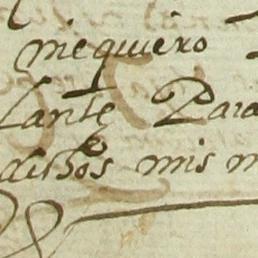 mequiero
lante Para
dichos mis m